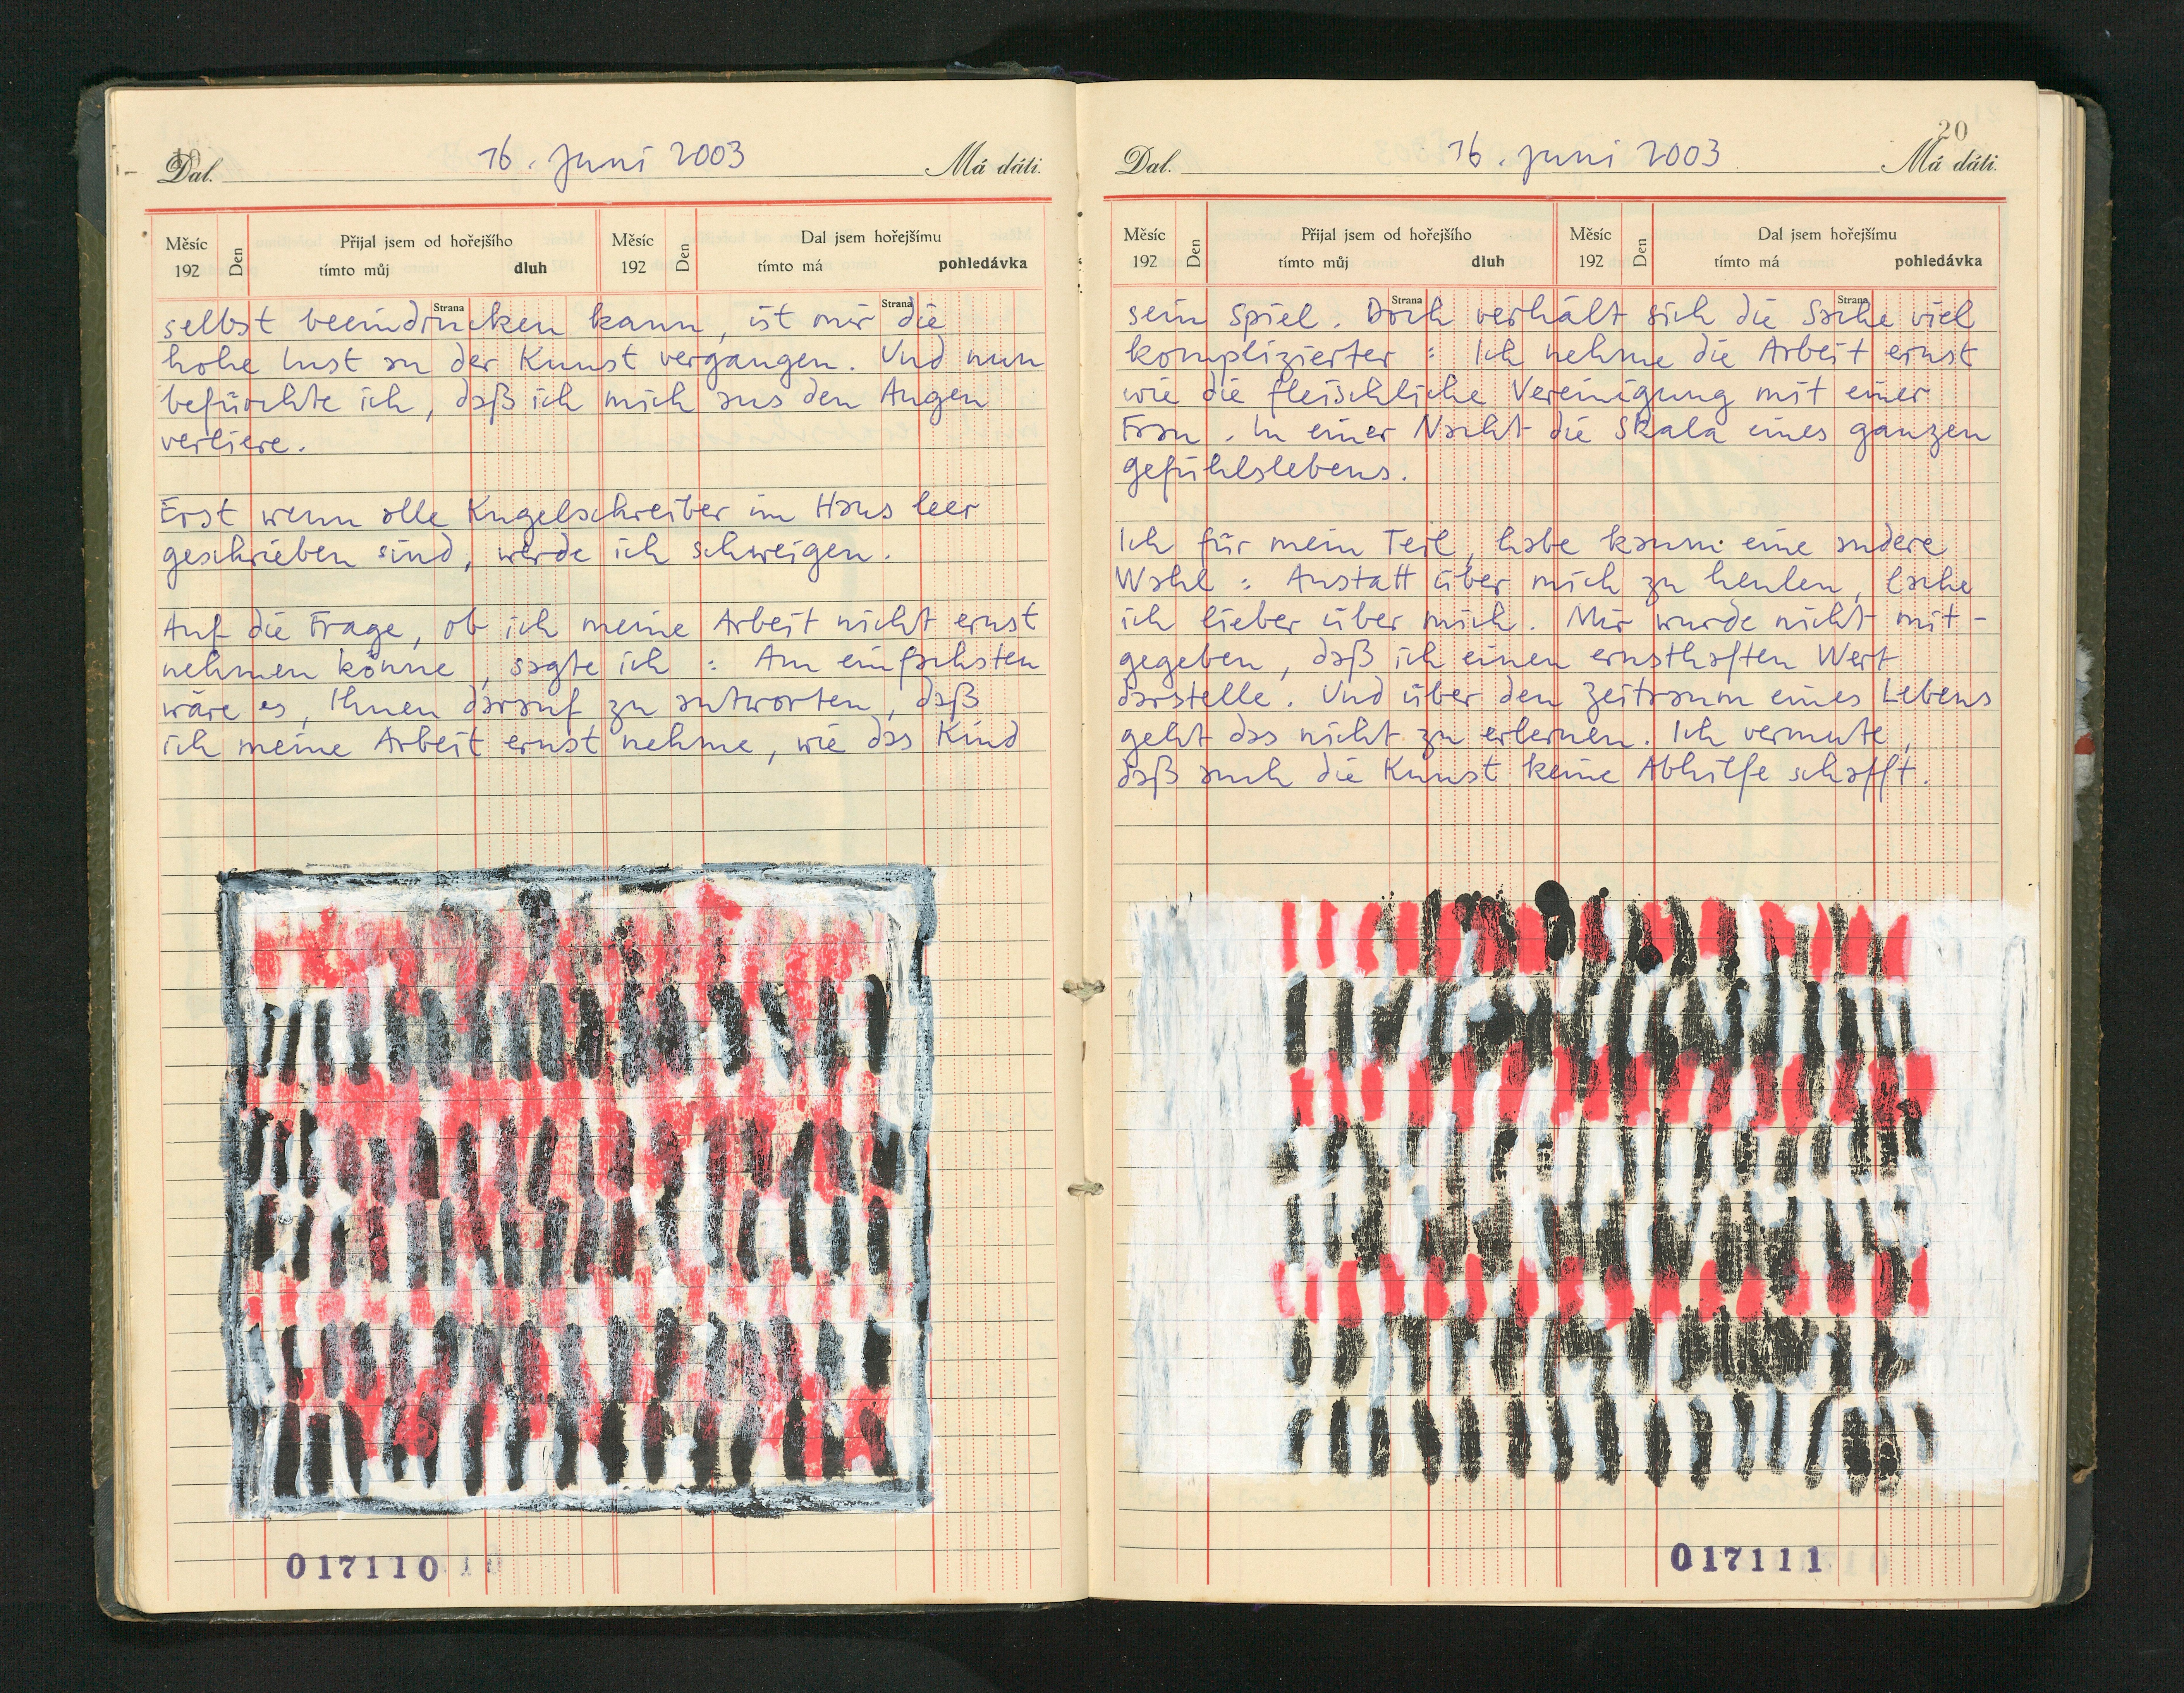 19
Dal.
16. Juni 2003
Má dáti.
Měsíc
192
Den
Přijal jsem od hořejšího
tímto můj dluh
Měsíc
192
Den
Dal jsem hořejšímu
tímto má pohledávka
Strana
Strana
selbst beeindrucken kann, ist mir die
hohe Lust an der Kunst vergangen. Und nun
befürchte ich, daß ich mich aus den Augen
verliere.
Erst wenn alle Kugelschreiber im Haus leer
geschrieben sind, werde ich schweigen.
Auf die Frage, ob ich meine Arbeit nicht ernst
nehmen könne, sagte ich : Am einfachsten
wäre es, Ihnen darauf zu antworten, daß
ich meine Arbeit ernst nehme, wie das Kind
017110
20
Dal.
16. Juni 2003
Má dáti.
Měsíc
192
Den
Přijal jsem od hořejšího
tímto můj dluh
Měsíc
192
Den
Dal jsem hořejšímu
tímto má pohledávka
Strana
Strana
sein Spiel. Doch verhält sich die Sache viel
komplizierter : Ich nehme die Arbeit ernst
wie die fleischliche Vereinigung mit einer
Frau. In einer Nacht die Skala eines ganzen
Gefühlslebens.
Ich für mein Teil, habe kaum eine andere
Wahl : Anstatt über mich zu heulen, lache
ich lieber über mich. Mir wurde nicht mit-
gegeben, daß ich einen ernsthaften Wert
darstelle. Und über den Zeitraum eines Lebens
geht das nicht zu erlernen. Ich vermute,
daß auch die Kunst keine Abhilfe schafft.
017111